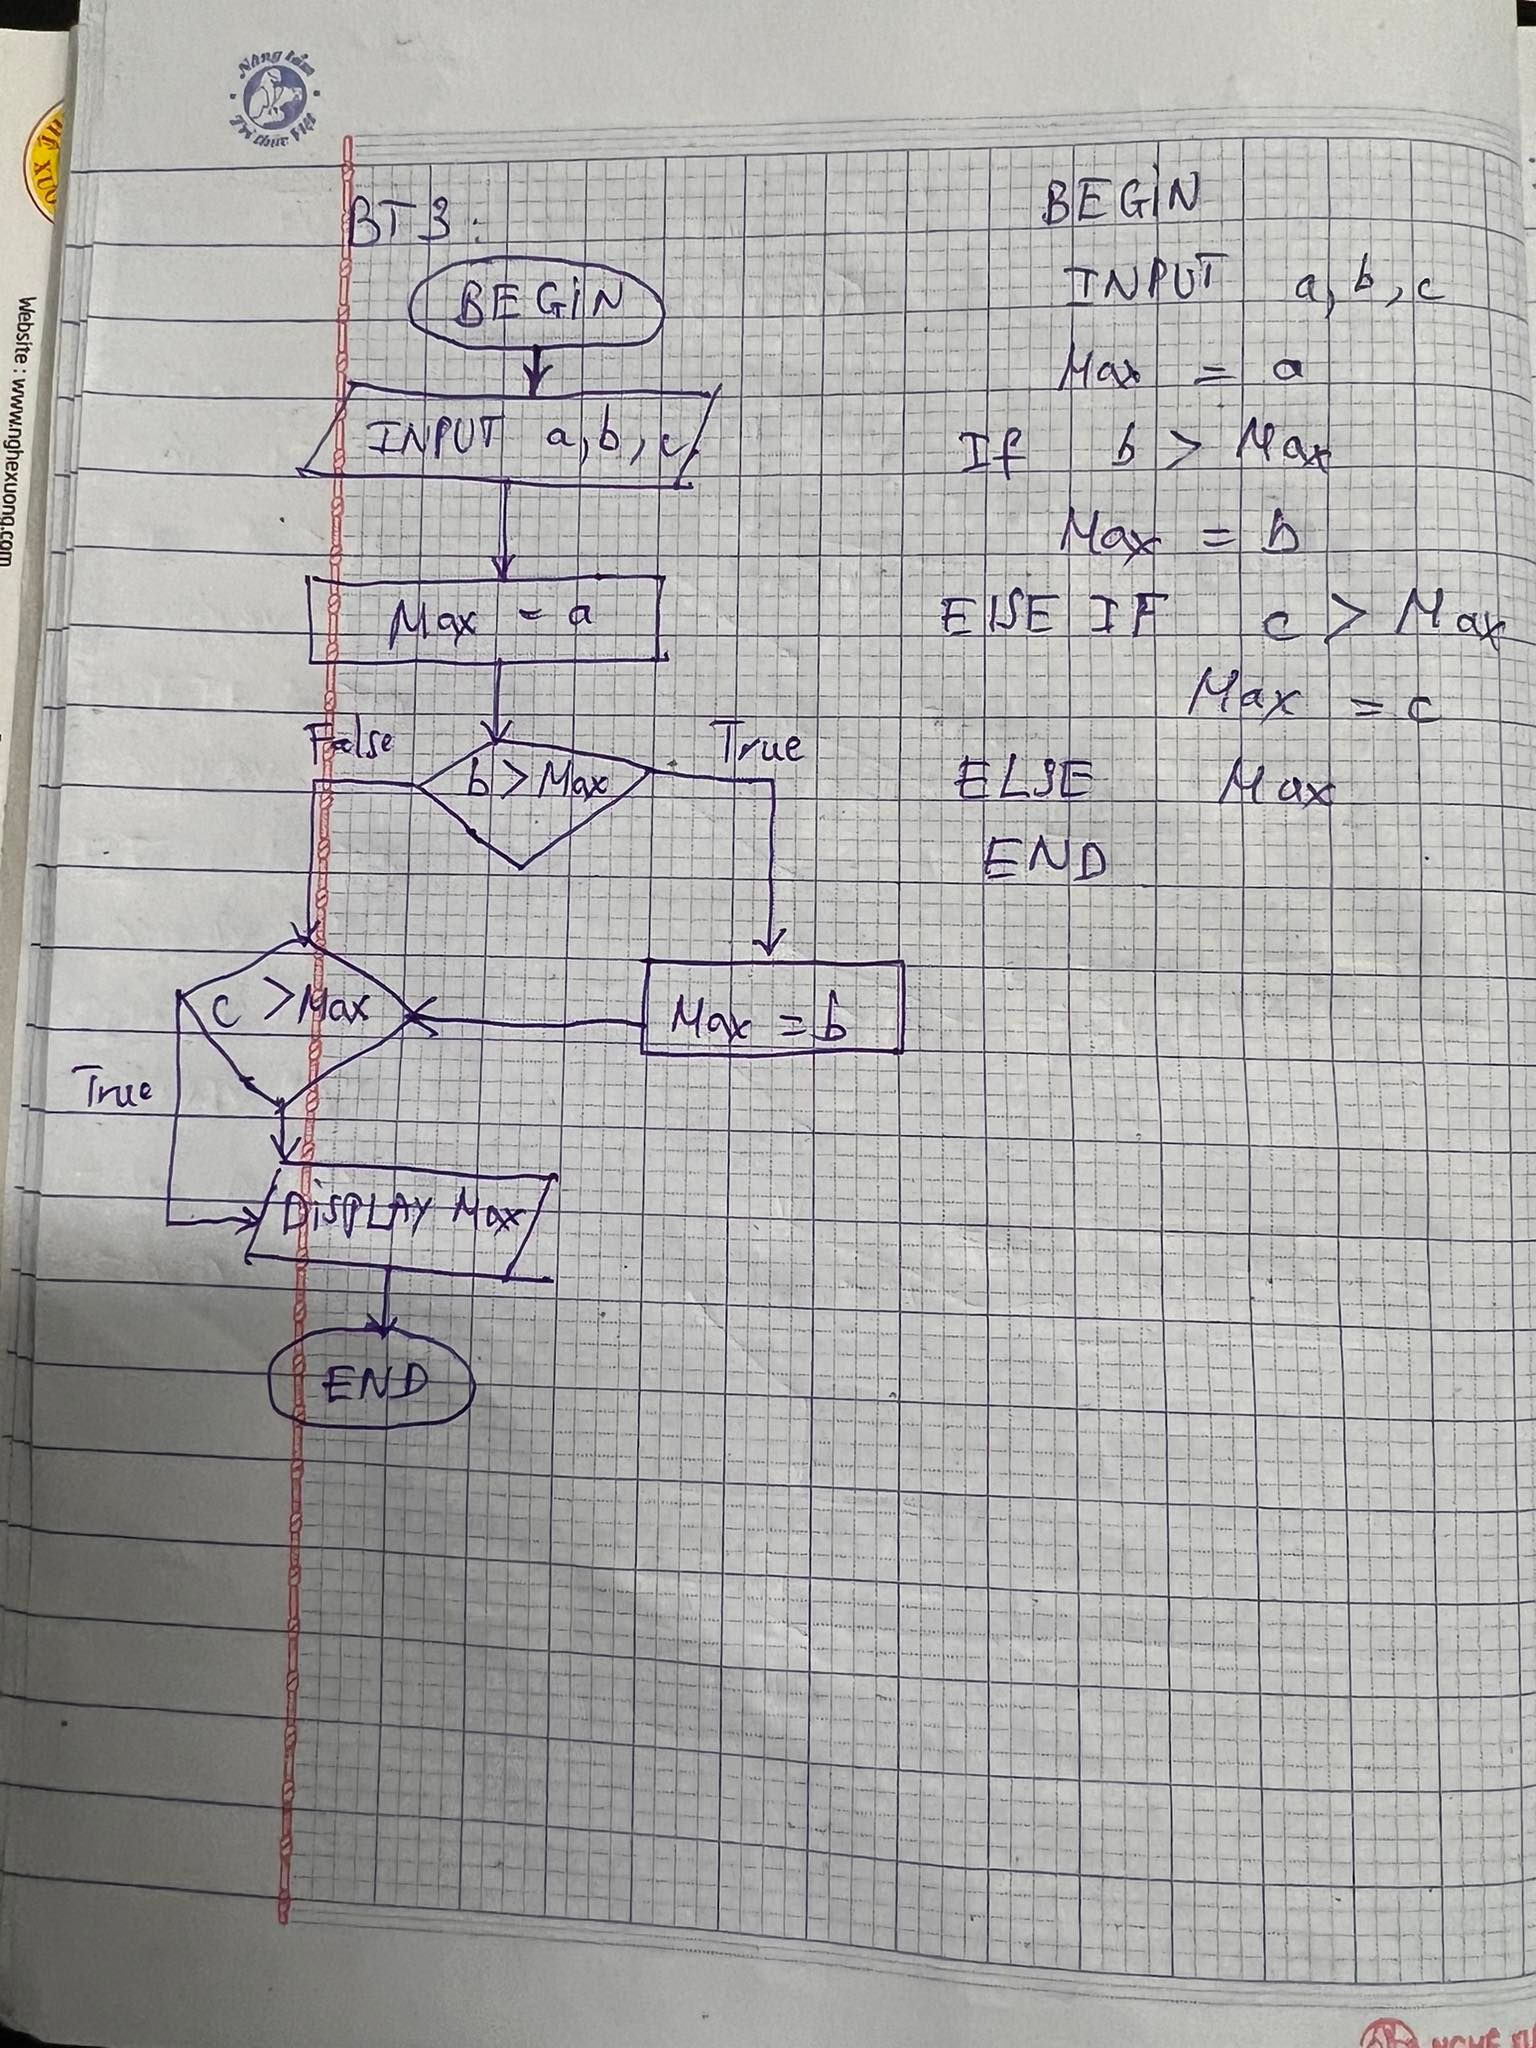 Nâng tầm
Tri thức Việt
Website : www.nghexuong.com
BT 3 :
BEGIN
INPUT a, b, c
Max = a
False
b > Max
True
c > Max
Max = b
True
DiSPLAY Max
END
BEGIN
INPUT a, b, c
Max = a
If b > Max
Max = b
ElSE IF c > Max
Max = c
ELSE Max
END